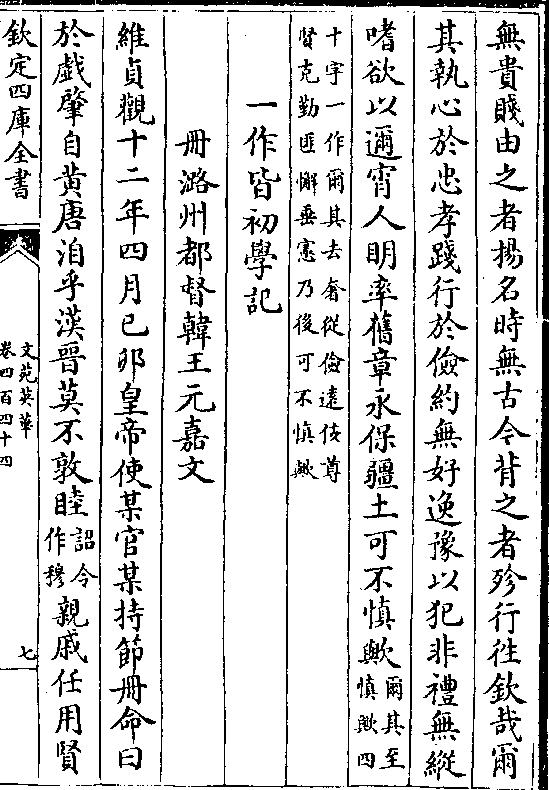 無貴賤由之者揚名時無古今背之者殄行徃欽哉爾
其執心於忠孝踐行於儉約無好逸豫以犯非禮無縱
嗜欲以邇宵人明率舊章永保疆土可不慎歟爾其至慎歟四
十字一作爾其去奢從儉遠佞尊
賢克勤匪懈垂憲乃後可不慎歟
一作皆初學記
册潞州都督韓王元嘉文
維貞觀十二年四月己卯皇帝使某官某持節册命曰
於戲肇自黄唐洎乎漢晉莫不敦睦詔令作穆親戚任用賢
欽定四庫全書
文苑英華
卷四百四十四
七